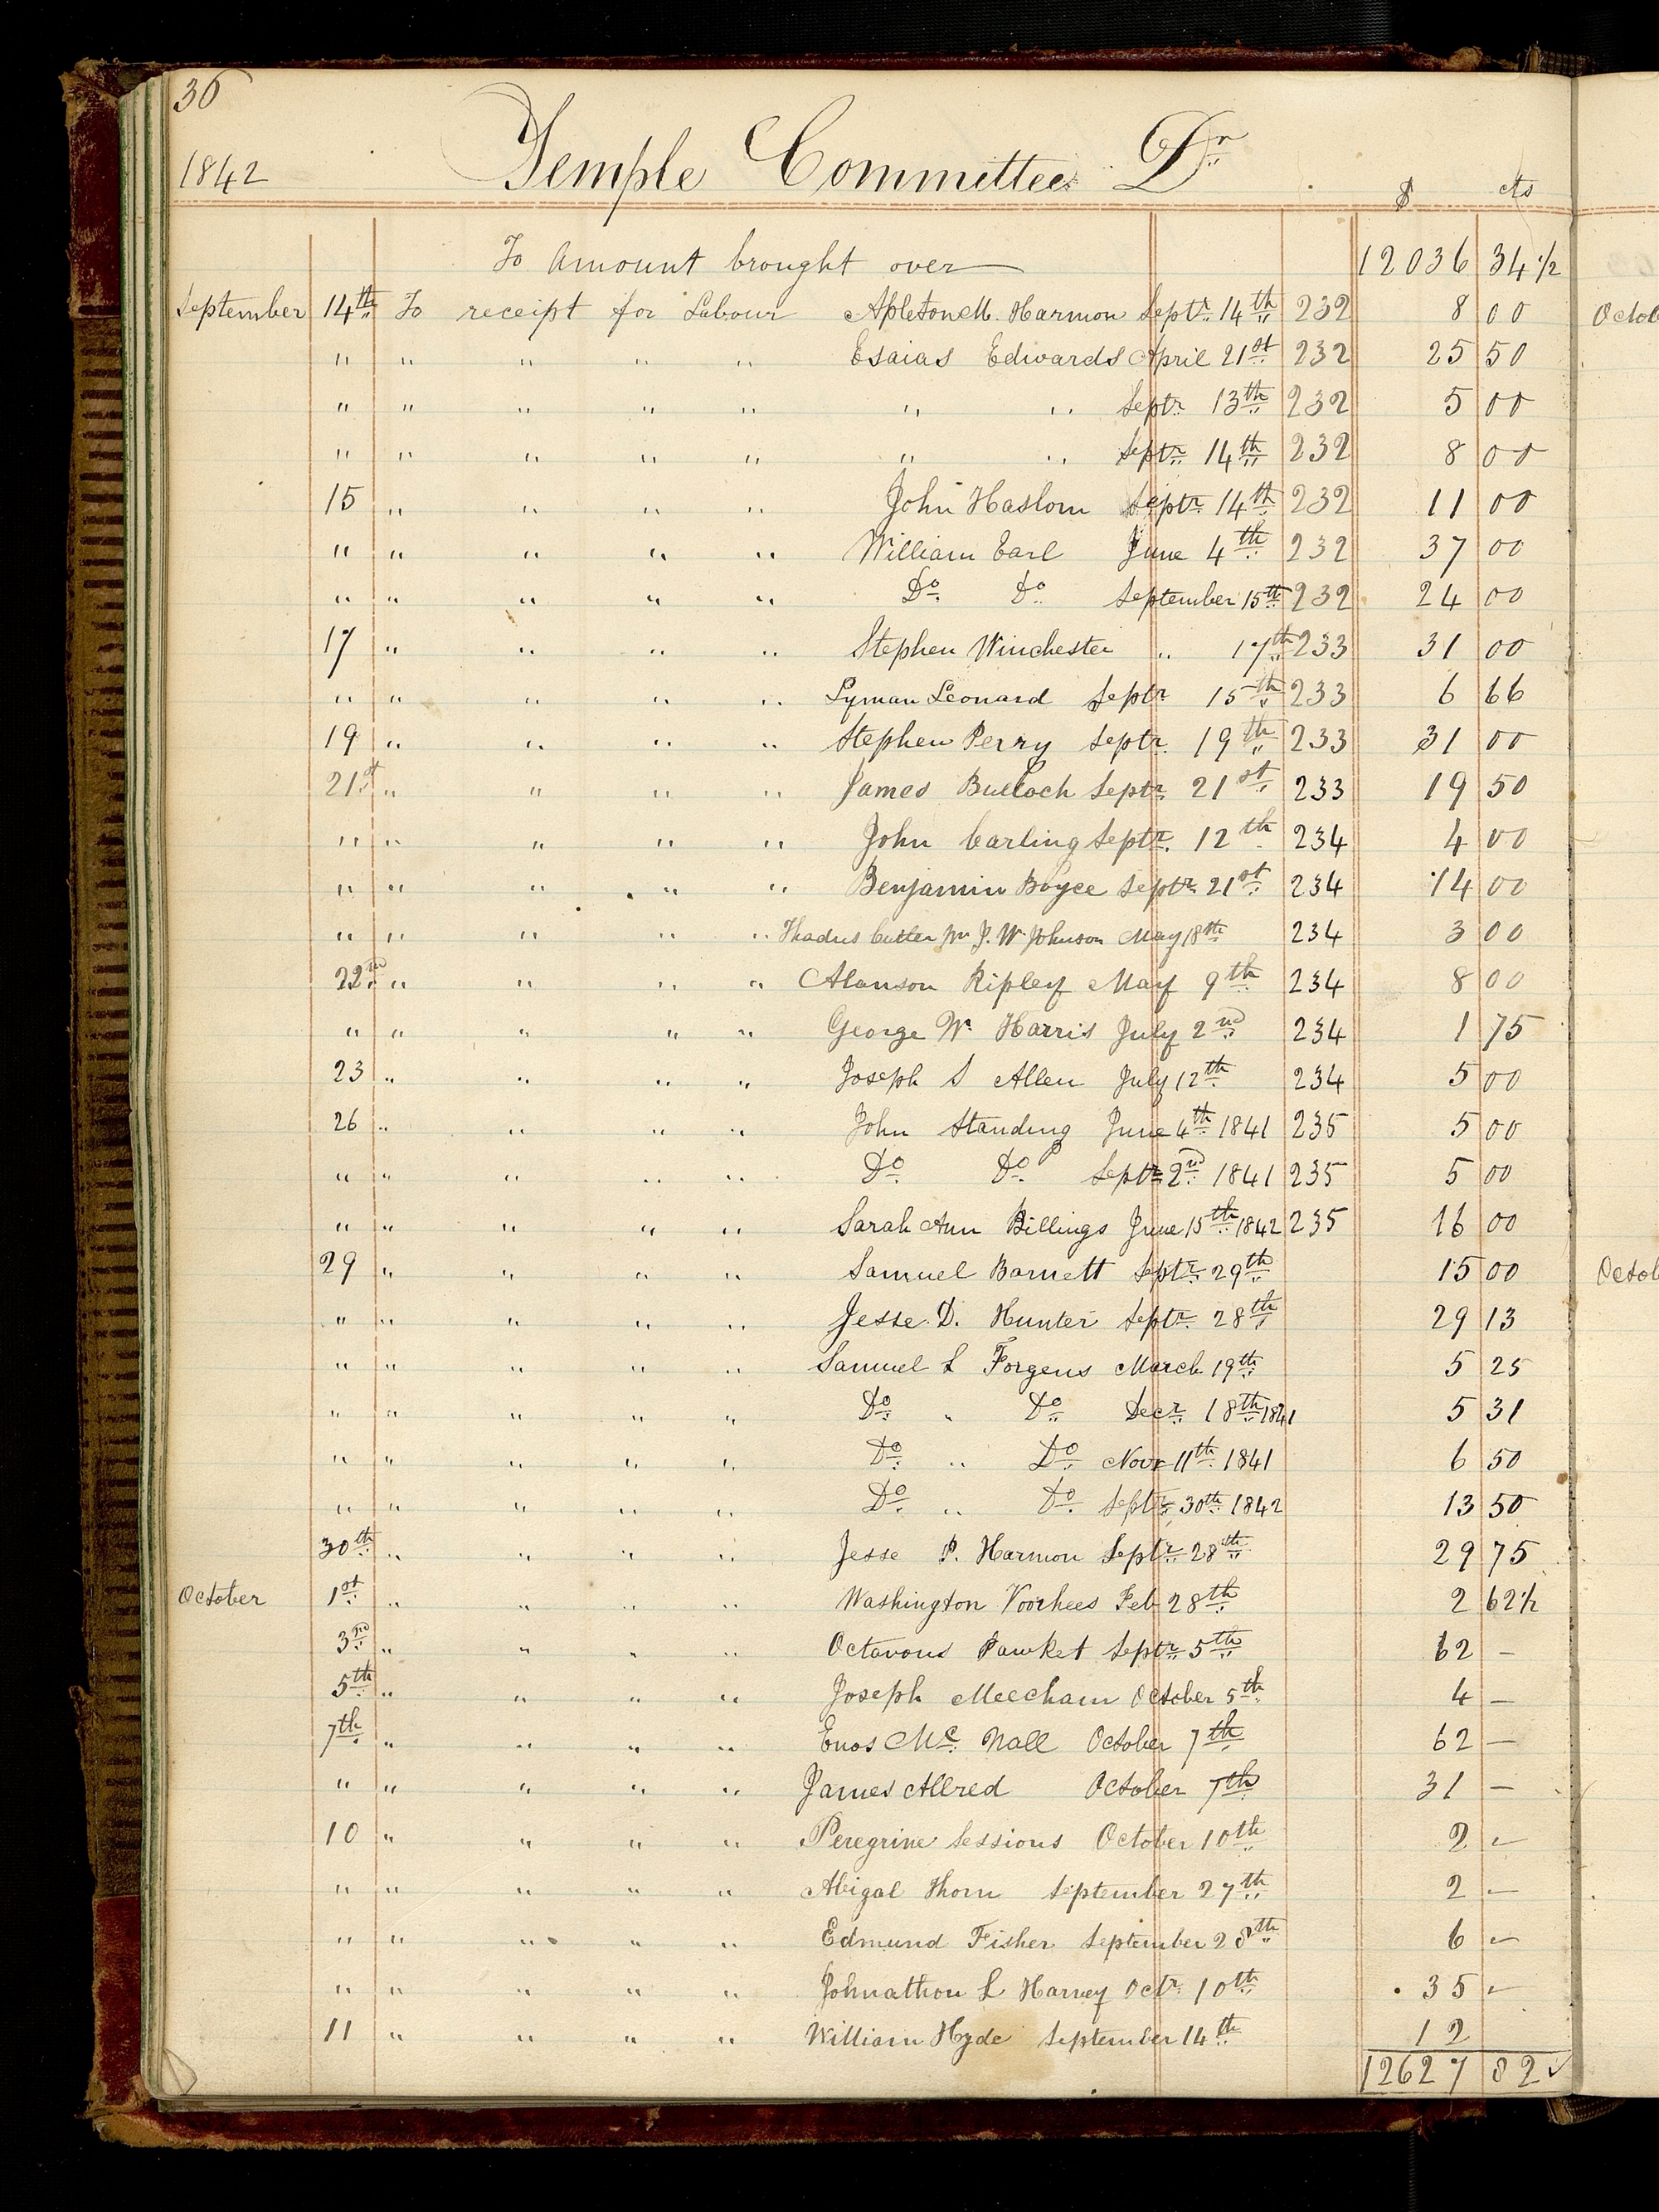 36
1842 Temple Committee Dr
$ cts
To Amount brought over 12036 34 1/2
September 14th To receipt for Labour Apleton M. Harmon Septr 14th 232 8 00
" " " " " Esaias Edwards April 21st 232 25 50
" " " " " " " Septr 13th 232 5 00
" " " " " " " Septr 14th 232 8 00
15 " " " " John Haslom Septr 14th 232 11 00
" " " " " William Earl June 4th 232 37 00
" " " " " Do Do September 15th 232 24 00
17 " " " " Stephen Winchester " 17th 233 31 00
" " " " " Lyman Leonard Septr 15th 233 6 66
19 " " " " Stephen Perry Septr 19th 233 31 00
21st " " " " James Bulloch Septr 21st 233 19 50
" " " " " John Carling Septr 12th 234 4 00
" " " " " Benjamin Boyce Septr 21st 234 14 00
" " " " " Thadus Cutler pr J. W Johnson May 18th 234 3 00
22nd " " " " Alanson Ripley May 9th 234 8 00
" " " " " George W Harris July 2nd 234 1 75
23 " " " " Joseph S Allen July 12th 234 5 00
26 " " " " John Standing June 4th 1841 235 5 00
" " " " " Do Do Septr 2nd 1841 235 5 00
" " " " " Sarah Ann Billings June 15th 1842 235 16 00
29 " " " " Samuel Barnett Septr 29th 15 00
" " " " " Jesse D. Hunter Septr 28th 29 13
" " " " " Samuel L Forgeus March 19th 5 25
" " " " " Do " Do Decr 18th 1841 5 31
" " " " " Do " Do Novr 11th 1841 6 50
" " " " " Do " Do Septr 30th 1842 13 50
30th " " " " Jesse P. Harmon Septr 28th 29 75
October 1st " " " " Washington Voorhees Feb 28th 2 62 1/2
3rd " " " " Octavous Pawket Septr 5th 62 –
5th " " " " Joseph Meecham October 5th 4 –
7th " " " " Enos Mc Nall October 7th 62 –
" " " " " James Allred October 7th 31 –
10 " " " " Peregrine Sessions October 10th 2 –
" " " " " Abigal Thorn September 27th 2 –
" " " " " Edmund Fisher September 28th 6 –
" " " " " Johnathon L Harvey Octr 10th 35 –
11 " " " " William Hyde September 14th 12
12627 82 ✓
Octob
Octob